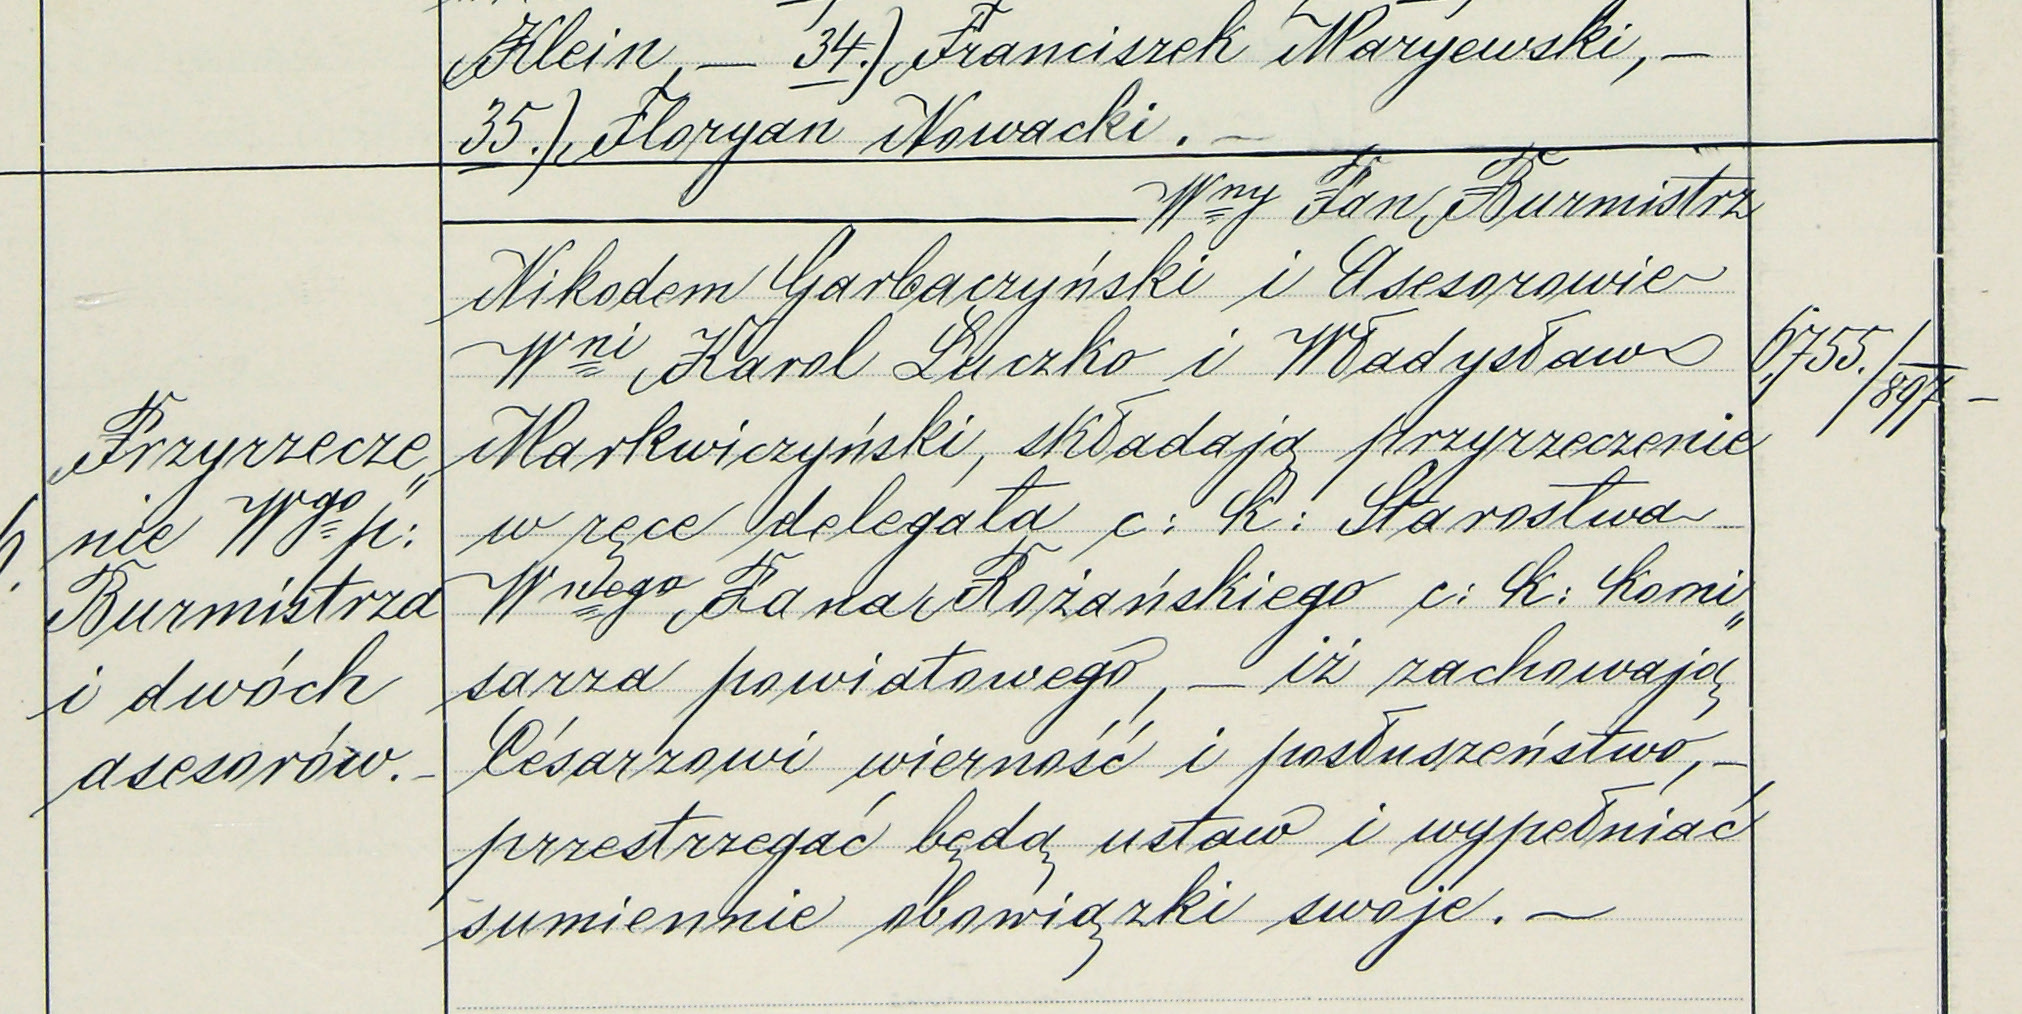 Klein, — 34.) Franciszek Maryewski, —
35.) Floryan Nowacki. —
Wny Pan Burmistrz
Nikodem Garbaczyński i Asesorowie
Wni Karol Łuczko i Władysław
Markwiczyński, składają przyrzeczenie
w ręce delegata c: k: Starostwa
Wnego Pana Rożańskiego c: k: komi„
sarza powiatowego, — iż zachowają
Césarzowi wierność i posłuszeństwo, —
przestrzegać będą ustaw i wypełniać
sumiennie obowiązki swoje. —
Przyrzecze„
nie Wgo p:
Burmistrza
i dwóch
asesorów. —
6755./897 —